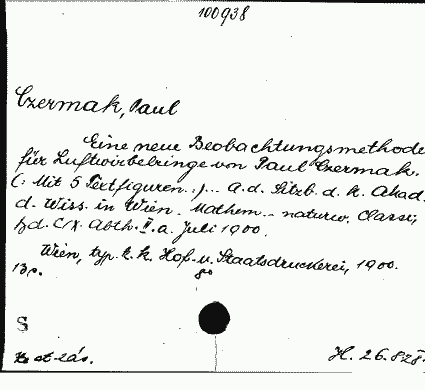 100938
Czermak, Paul
Eine neue Beobachtungsmethode
für Luftwirbelringe von Paul Czermak.
(: Mit 5 Textfiguren :) ... A. d. Sitzb. d. k. Akad.
d. Wiss. in Wien. Mathem. - naturw. Classe;
bd. CIX. Abth. II. a. Juli 1900.
Wien, typ. k. k. Hof- u. Staatsdruckerei, 1900.
8°
S
H. 26.828.